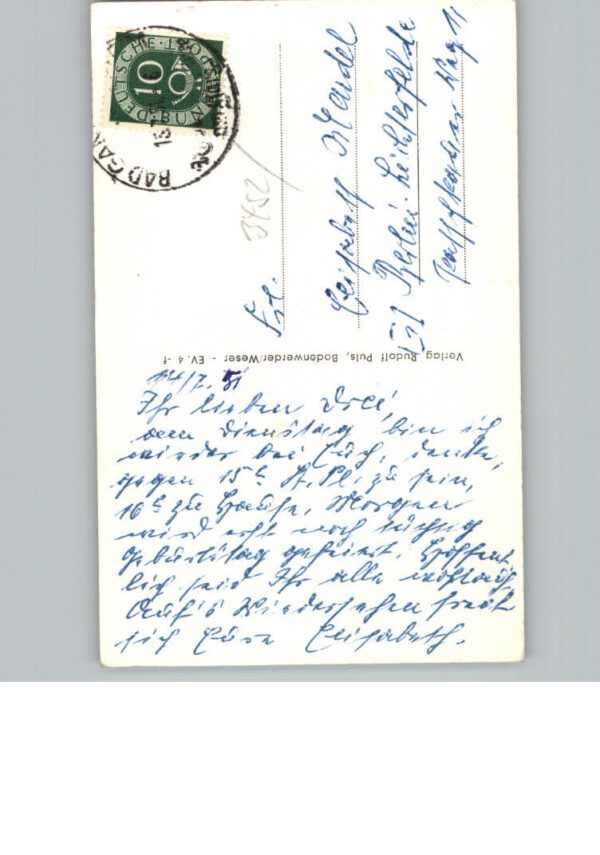 14/7.51
Ihr lieben Drei,
am Dienstag bin ich
wieder bei Euch, denke,
gegen 15h A. Pl. zu sein,
16h zu Hause. Morgen
wird erst noch tüchtig
Geburtstag gefeiert. Hoffent-
lich seid Ihr alle wohlauf.
Auf's Wiedersehen freut
sich Eure Elisabeth.
Verlag Rudolf Puls, Bodenwerder/Weser - EV. 4 -f
Frl.
Mandel
Berlin-Lichterfelde
Weg 11
3452
DEUTSCHE BUNDESPOST
10
BAD GAN